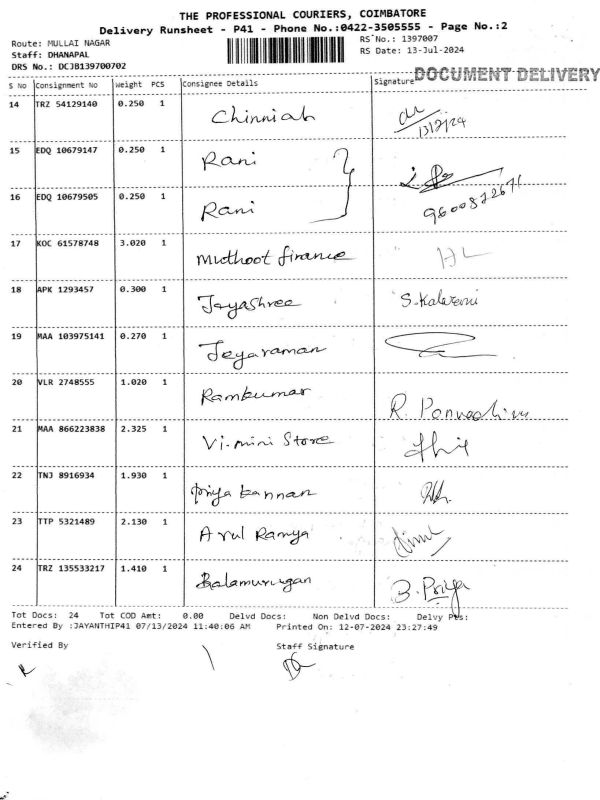 THE PROFESSIONAL COURIERS, COIMBATORE
Delivery Runsheet - P41 - Phone No.:0422-3505555 - Page No.:2
Route: MULLAI NAGAR RS No.: 1397007
Staff: DHANAPAL RS Date: 13-Jul-2024
DRS No.: DCJB139700702 DOCUMENT DELIVERY
S No Consignment No Weight PCS Consignee Details Signature
14 TRZ 54129140 0.250 1 Chinniah
13/7/24
15 EDQ 10679147 0.250 1 Rani
16 EDQ 10679505 0.250 1 Rani 9600872671
17 KOC 61578748 3.020 1 Muthoot finance
18 APK 1293457 0.300 1 Jeyashree
19 MAA 103975141 0.270 1 Jeyaraman
20 VLR 2748555 1.020 1 Ramkumar
21 MAA 866223838 2.325 1 Vi-mini Store
22 TNJ 8916934 1.930 1 Priya kannan
23 TTP 5321489 2.130 1 Arul Ramya
24 TRZ 135533217 1.410 1 Balamurugan B. Priya
Tot Docs: 24 Tot COD Amt: 0.00 Delvd Docs: Non Delvd Docs: Delvy Pts:
Entered By :JAYANTHIP41 07/13/2024 11:40:06 AM Printed On: 12-07-2024 23:27:49
Verified By Staff Signature